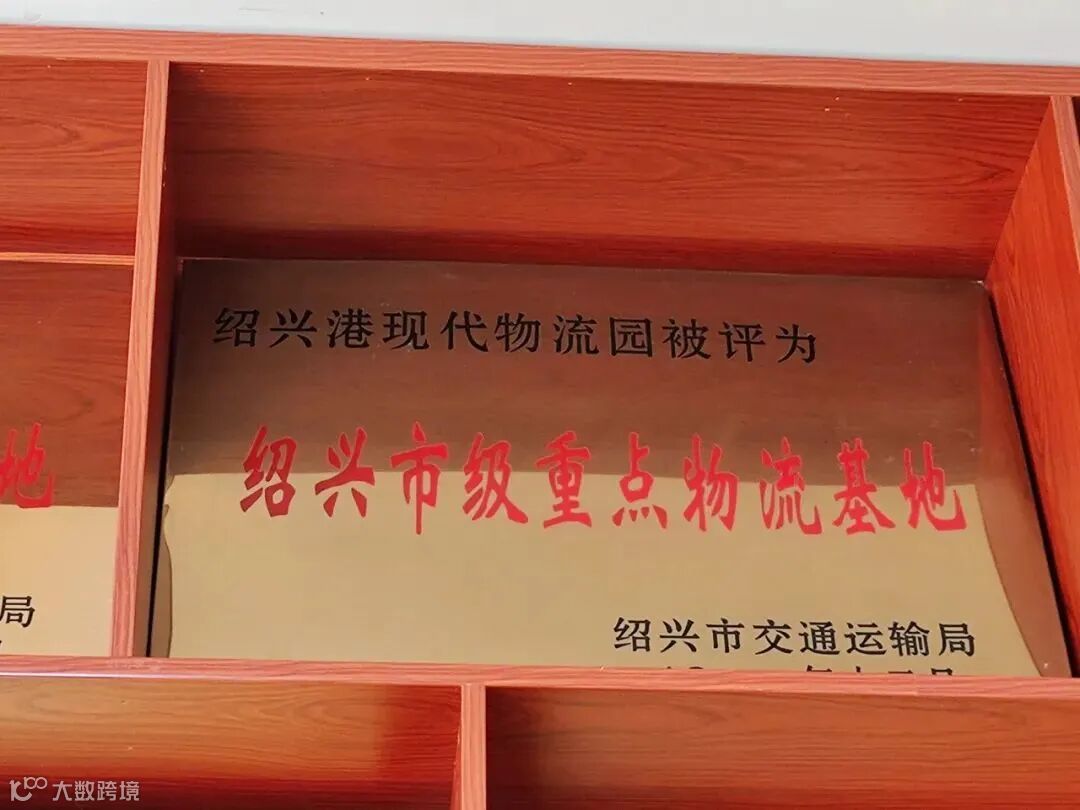 绍兴港现代物流园被评为
绍兴市级重点物流基地
绍兴市交通运输局
地
局
大数跨境